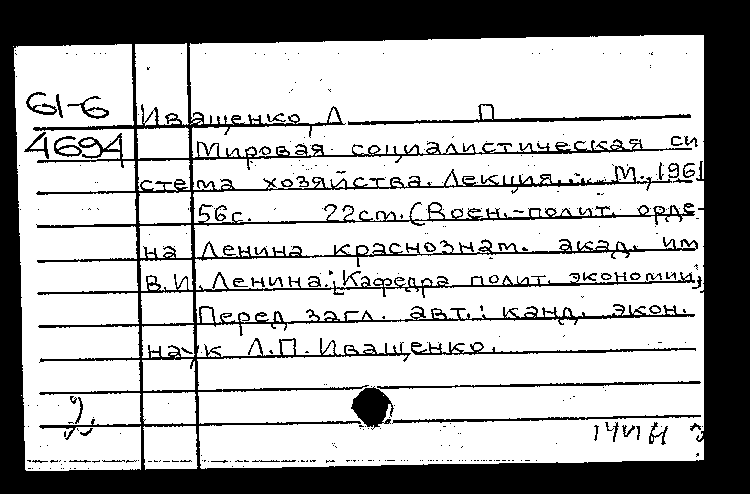 61-6
Иващенко, Л П
4694
Мировая социалистическая си
стема хозяйства. Лекция. .. М., 1961
56с. 22см. (Воен.-полит. орде-
на Ленина краснознам. акад. им
В.И. Ленина. [Кафедра полит. экономии]
Перед загл. авт.: канд. экон.
наук Л.П. Иващенко.
2